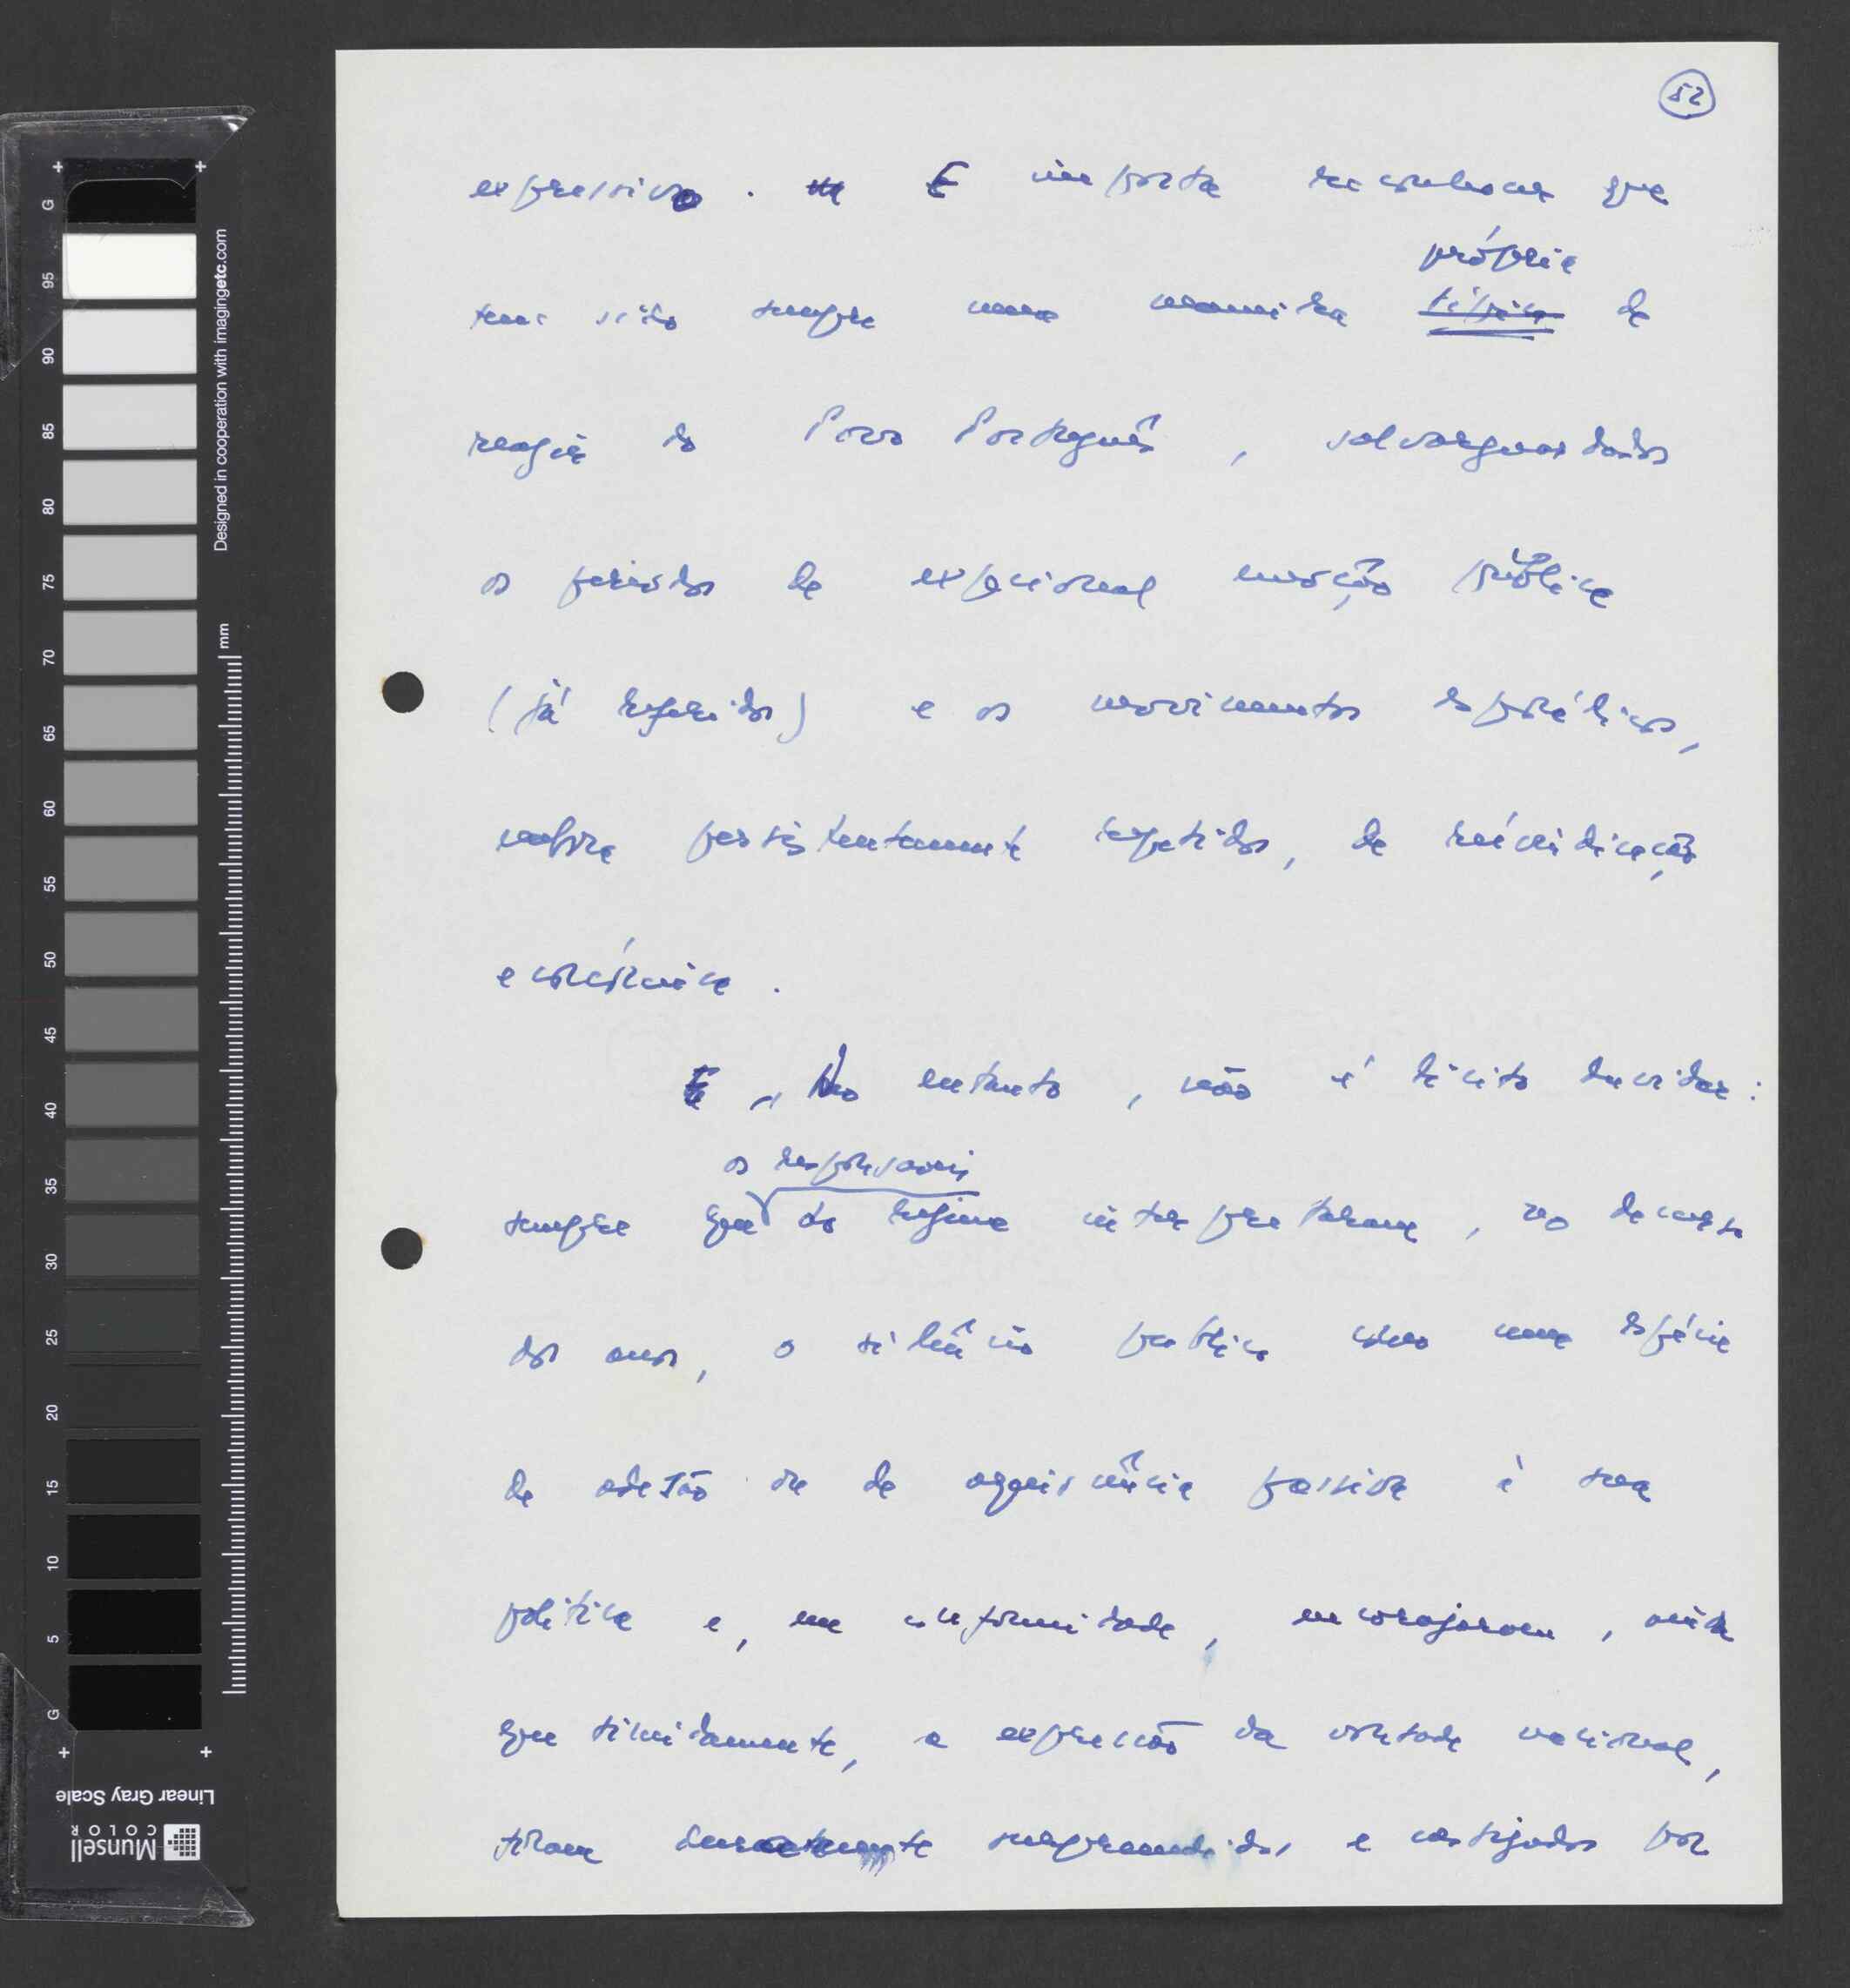 52
expressivo. E importa reconhecer que
própria
tem sido sempre uma maneira típica de
reagir do Povo Português, salvaguardados
os períodos de expcional emoção pública
(já referidos) e os movimentos esporádicos,
embora persistentemente repetidos, de reivindicação
económica.
E, No entanto, não é lícito duvidar:
os responsáveis
sempre que do regime interpretaram, no decurso
dos anos, o silêncio público como uma espécie
de adesão ou de aquiescência passiva à sua
política e, em conformidade, encorajaram, ainda
que timidamente, a expressão da vontade nacional,
foram duramente surpreendidos e castigados por
Designed in cooperation with imagingetc.com
mm
G 95 90 85 80 75 70 65 60 55 50 45 40 35 30 25 20 15 10 5 G
Linear Gray Scale
Munsell
COLOR